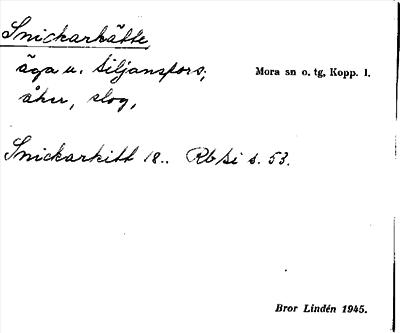 Snickarkätte,
äga u. Siljansfors;
Mora sn o. tg, Kopp. l.
åker, slog,
Snickarkitt 18.. Rb Si s. 53.
Bror Lindén 1945.